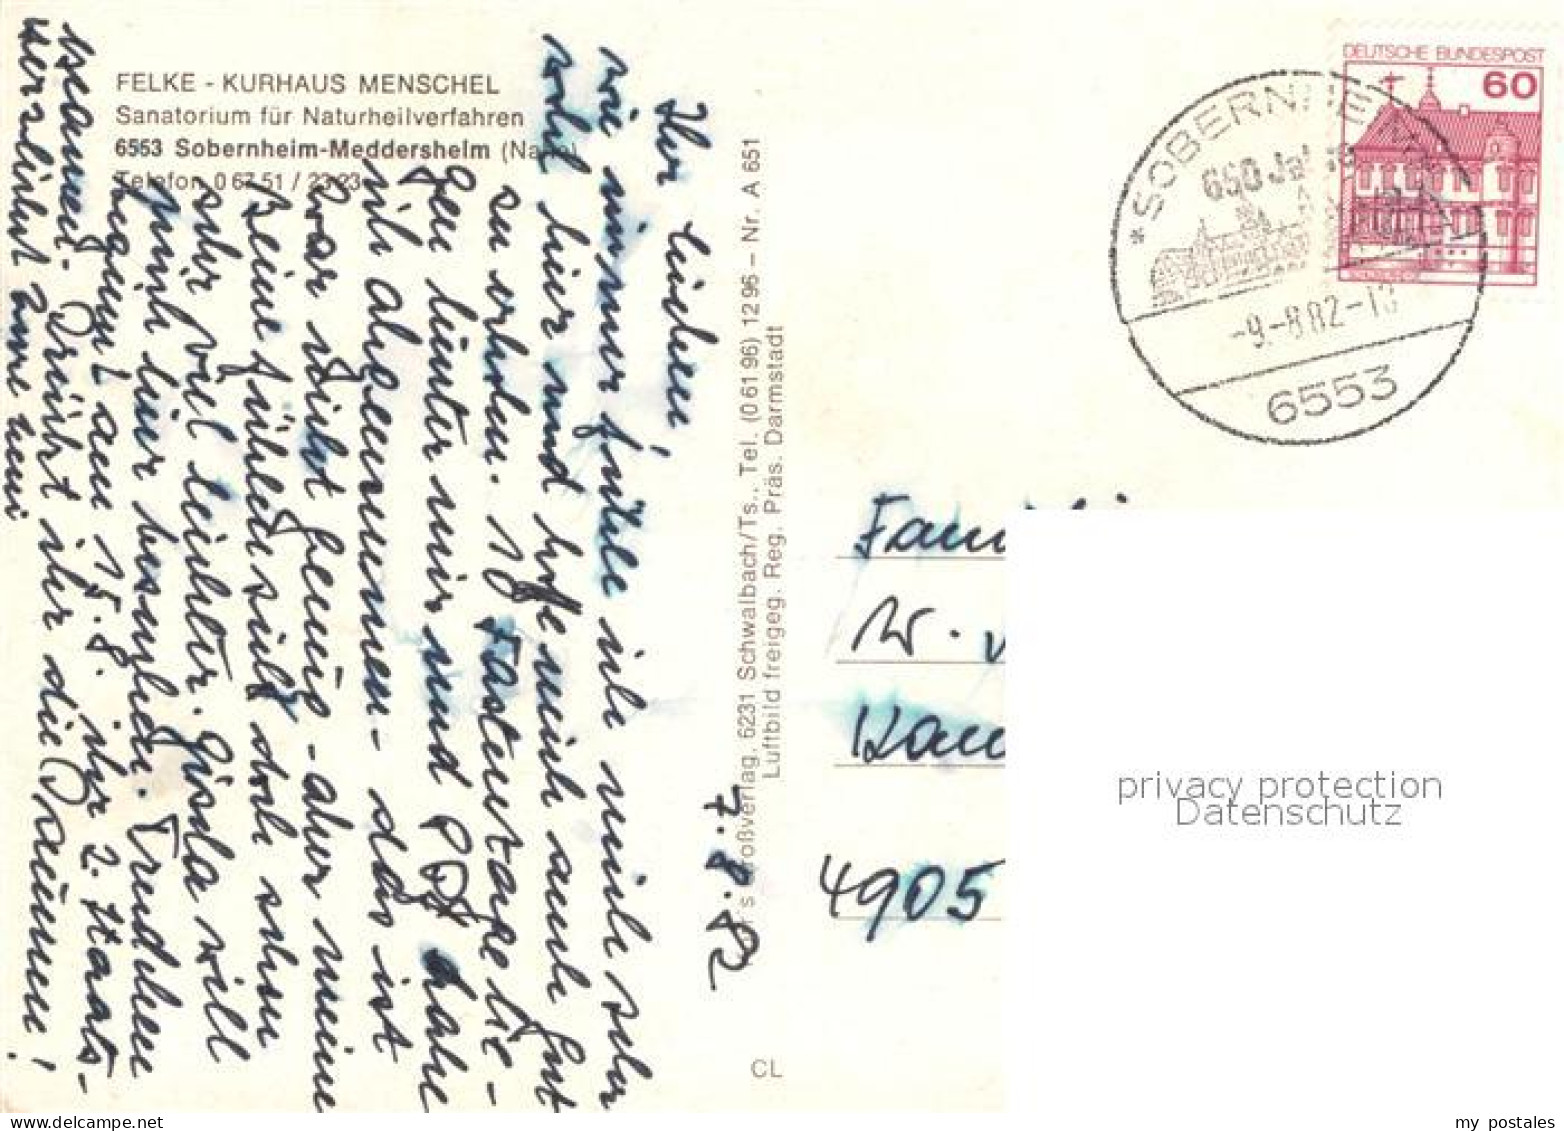 FELKE - KURHAUS MENSCHEL
Sanatorium für Naturheilverfahren
6553 Sobernheim-Meddersheim (Nahe)
Telefon 0 67 51 / 23 23
7. 8. 82
Ihr lieben,
wie immer fühle ich mich sehr
wohl hier und hoffe mich auch gut
zu erholen. 10 Fastentage lie-
gen hinter mir und habe
ich abgenommen - das ist
zwar nicht genug - aber meine
Beine fühlen sich doch schon
sehr viel leichter. Gisela will
mich hier besuchen. Trudchen
beginnt am 15. 8. ihr 2. Staats-
examen. Drückt ihr die Daumen!
Herzlichst Eure
roßverlag, 6231 Schwalbach/Ts., Tel. (0 61 96) 12 96 – Nr. A 651
Luftbild freigeg. Reg. Präs. Darmstadt
CL
DEUTSCHE BUNDESPOST
60
* SOBERNHEIM
650 Jahre
-9-8 82-
6553
Fam
W. v
4905
privacy protection
Datenschutz
my postales
delcampe.net